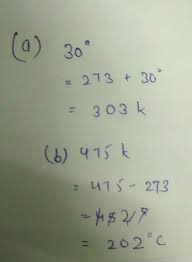 (a) 30°
= 273 + 30°
= 303 k
(b) 475 k
= 475 - 273
=
= 202°C